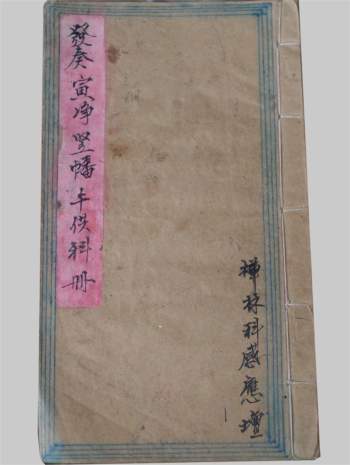 發奏寅净竖幡午供科册
禅林科感應壇